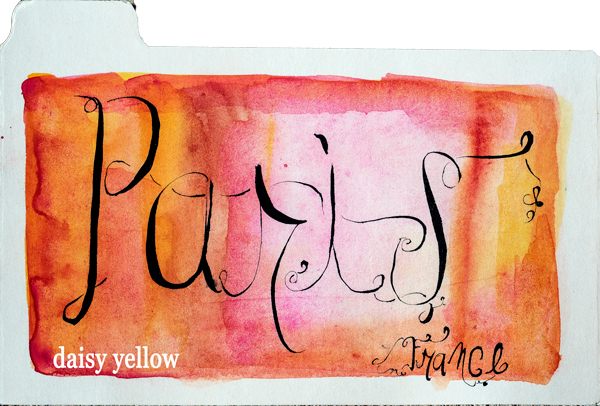 Paris
France
daisy yellow